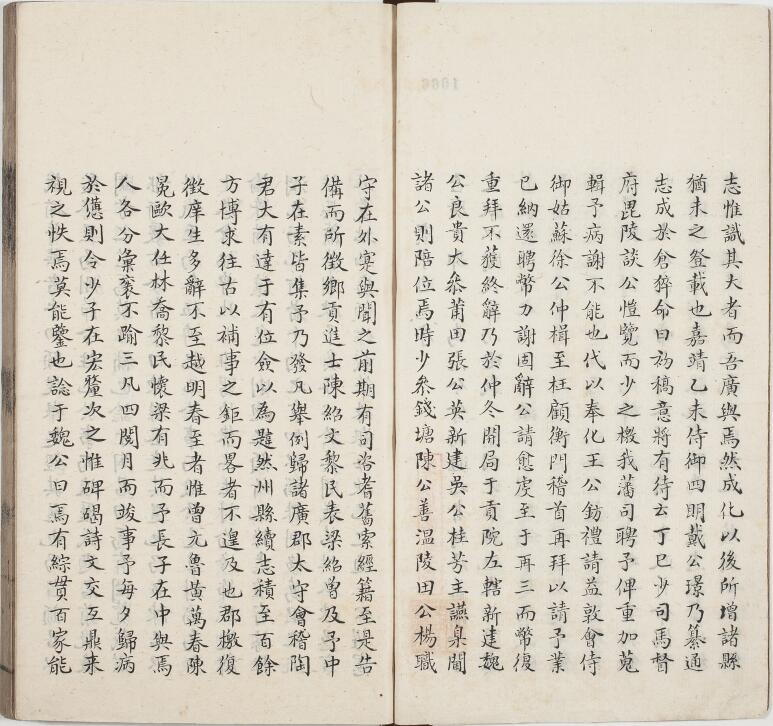 志惟識其大者而吾廣與焉然成化以後所增諸縣
猶未之登載也嘉靖乙未侍御四明戴公璟乃纂通
志成於倉猝命曰初稿意將有待云丁巳少司馬督
府毘陵談公愷覽而少之檄我藩司聘予俾重加蒐
輯予病謝不能也代以奉化王公鈁禮請益敦會侍
御姑蘇徐公仲楫至枉顧衡門稽首再拜以請予業
已納還聘幣力謝固辭公請愈虔至于再三而幣復
重拜不獲終辭乃於仲冬開局于貢院左轄新建魏
公良貴大叅莆田張公英新建吳公桂芳主讌臬閫
諸公則陪位焉時少叅錢塘陳公善溫陵田公楊職
守在外寔與聞之前期有司咨耆舊索經籍至是告
備而所徵鄉貢進士陳紹文黎民表梁紹曾及予中
子在素皆集予乃發凡舉例歸諸廣郡太守會稽陶
君大有達于有位僉以為韙然州縣續志積至百餘
方博求往古以補事之鉅而畧者不遑及也郡檄復
徵庠生多辭不至越明春至者惟曾元魯黃萬春陳
冕歐大任林喬黎民懷梁有兆而予長子在中與焉
人各分彙袠不踰三凡四閱月而竣事予每夕歸病
於憊則令少子在宏釐次之惟碑碣詩文交互鼎来
視之怢焉莫能鑒也諗于魏公曰焉有綜貫百家能